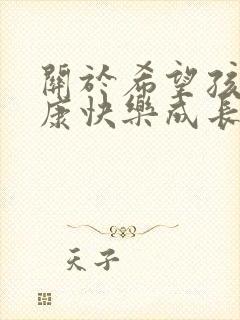 關於希望孩
康快樂成長
天子